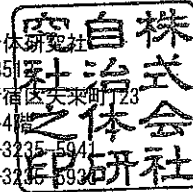 体研究社
宿区矢来町123
3235-5941
株式会社
自治体研
究社之印